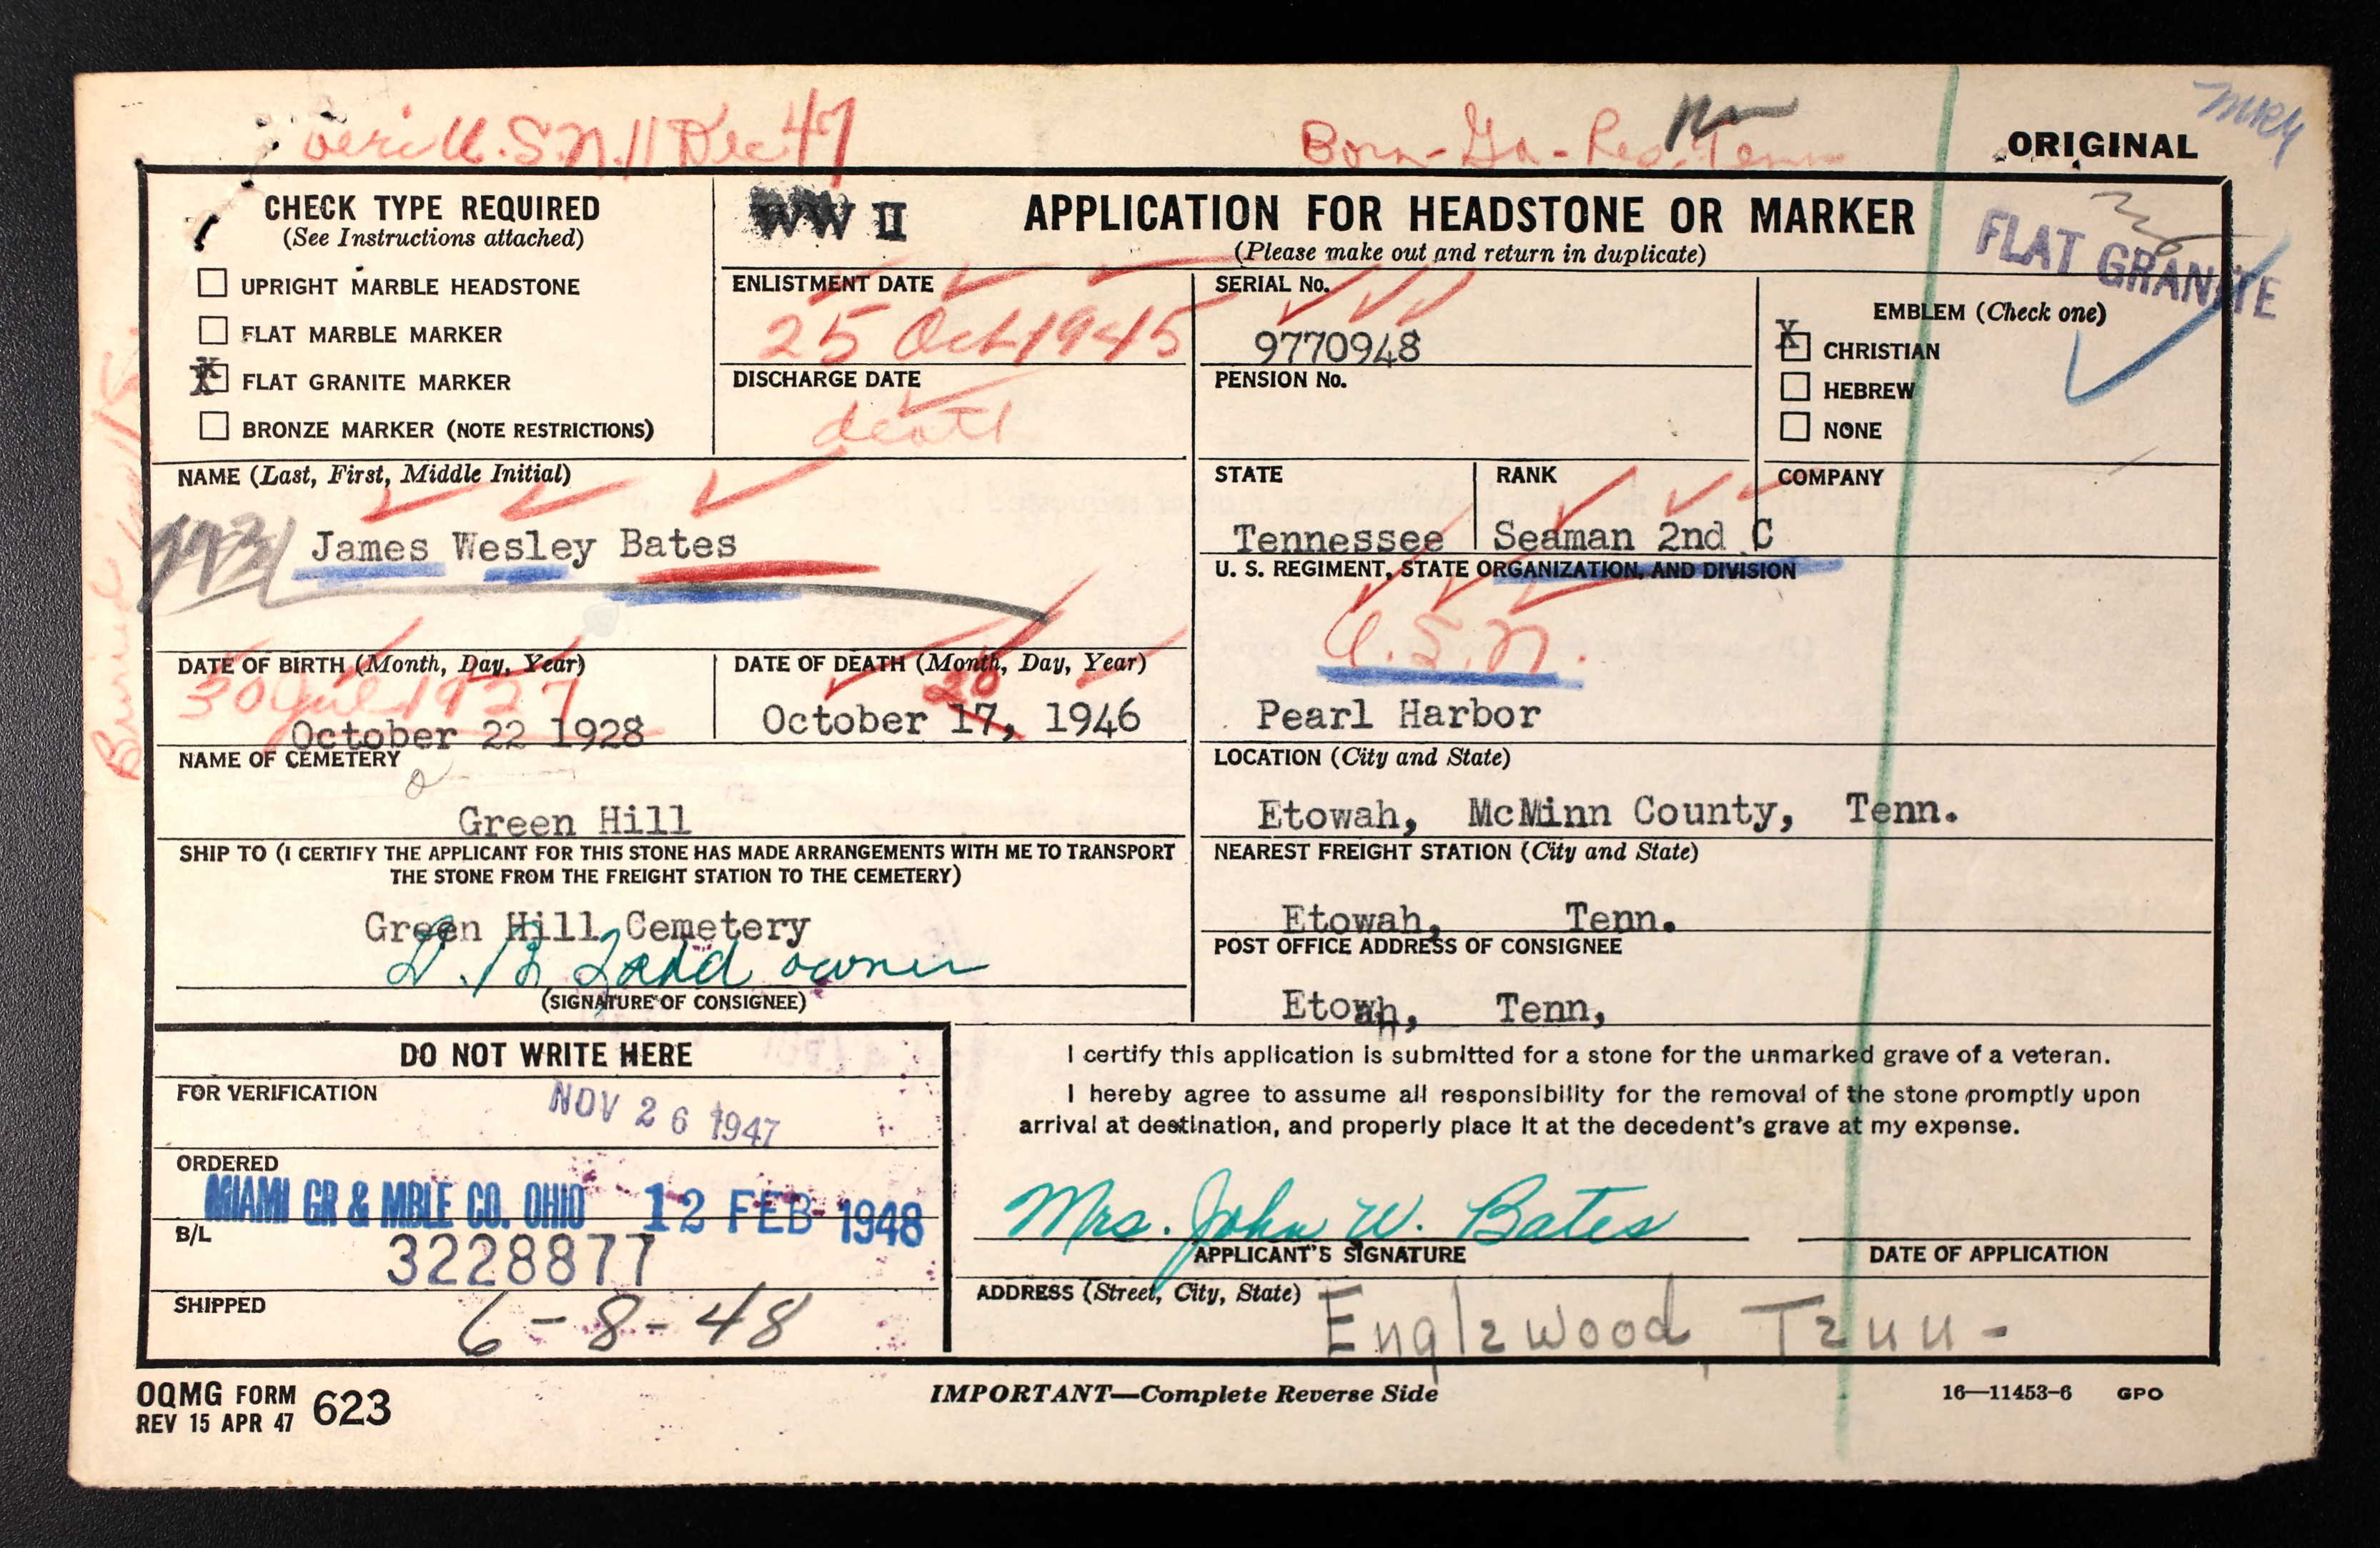 veri U.S.N. 11 Dec 47
Born - Ga - Res. Tenn
ORIGINAL
CHECK TYPE REQUIRED
(See Instructions attached)
UPRIGHT MARBLE HEADSTONE
FLAT MARBLE MARKER
X FLAT GRANITE MARKER
BRONZE MARKER (NOTE RESTRICTIONS)
WW II
APPLICATION FOR HEADSTONE OR MARKER
(Please make out and return in duplicate)
FLAT GRANITE
ENLISTMENT DATE
25 Oct 1945
DISCHARGE DATE
death
SERIAL No.
9770948
PENSION No.
EMBLEM (Check one)
X CHRISTIAN
HEBREW
NONE
NAME (Last, First, Middle Initial)
James Wesley Bates
STATE
Tennessee
RANK
Seaman 2nd C
COMPANY
U. S. REGIMENT, STATE ORGANIZATION, AND DIVISION
U.S.N.
Pearl Harbor
DATE OF BIRTH (Month, Day, Year)
30 Jul 1927
October 22 1928
DATE OF DEATH (Month, Day, Year)
October 17, 1946
NAME OF CEMETERY
Green Hill
LOCATION (City and State)
Etowah, McMinn County, Tenn.
SHIP TO (I CERTIFY THE APPLICANT FOR THIS STONE HAS MADE ARRANGEMENTS WITH ME TO TRANSPORT
THE STONE FROM THE FREIGHT STATION TO THE CEMETERY)
Green Hill Cemetery
owner
(SIGNATURE OF CONSIGNEE)
NEAREST FREIGHT STATION (City and State)
Etowah, Tenn.
POST OFFICE ADDRESS OF CONSIGNEE
Etowah, Tenn,
DO NOT WRITE HERE
FOR VERIFICATION
NOV 26 1947
ORDERED
MIAMI GR & MBLE CO. OHIO 12 FEB 1948
B/L
3228877
SHIPPED
6-8-48
I certify this application is submitted for a stone for the unmarked grave of a veteran.
I hereby agree to assume all responsibility for the removal of the stone promptly upon
arrival at destination, and properly place it at the decedent's grave at my expense.
Mrs. John W. Bates
APPLICANT'S SIGNATURE
DATE OF APPLICATION
ADDRESS (Street, City, State)
Englewood, Tenn-
OQMG FORM 623
REV 15 APR 47
IMPORTANT—Complete Reverse Side
16—11453-6 GPO